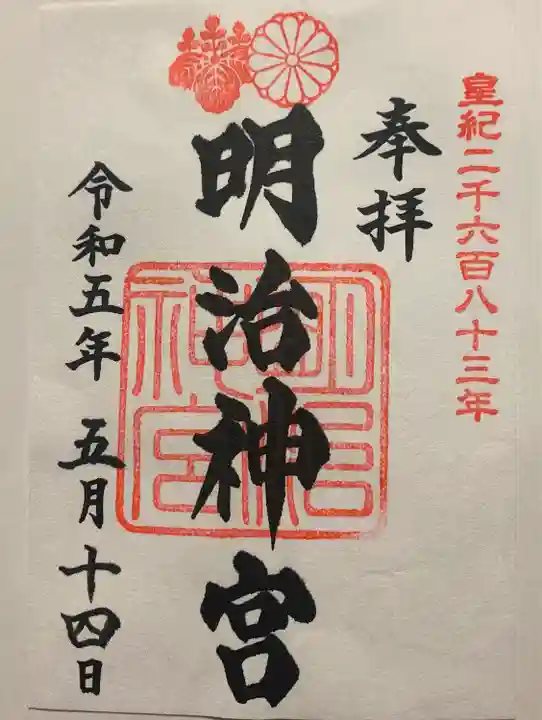 皇紀二千六百八十三年
奉拝
明治神宮
明治神宮
令和五年 五月十四日